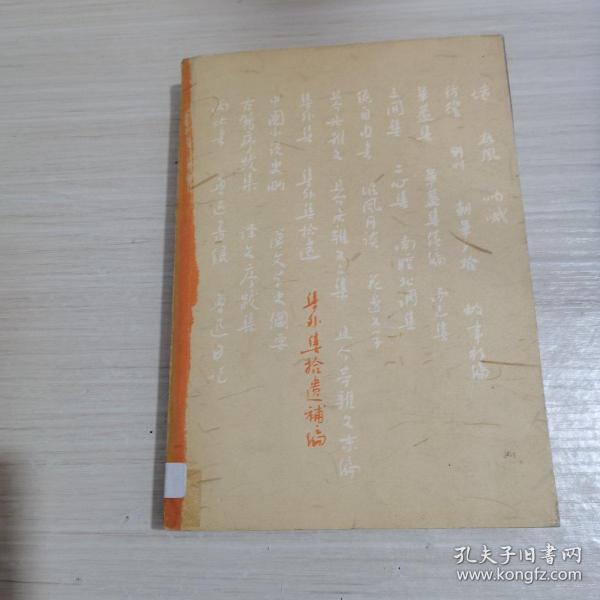 坟 热风 呐喊
彷徨 野草 朝花夕拾 故事新编
华盖集 华盖集续编 而已集
三闲集 二心集 南腔北调集
伪自由书 准风月谈 花边文学
且介亭杂文 且介亭杂文二集 且介亭杂文末编
集外集 集外集拾遗 集外集拾遗補编
中国小说史略 汉文学史纲要
古籍序跋集 译文序跋集
两地书 鲁迅书信 鲁迅日记
孔夫子旧书网
www.kongfz.com